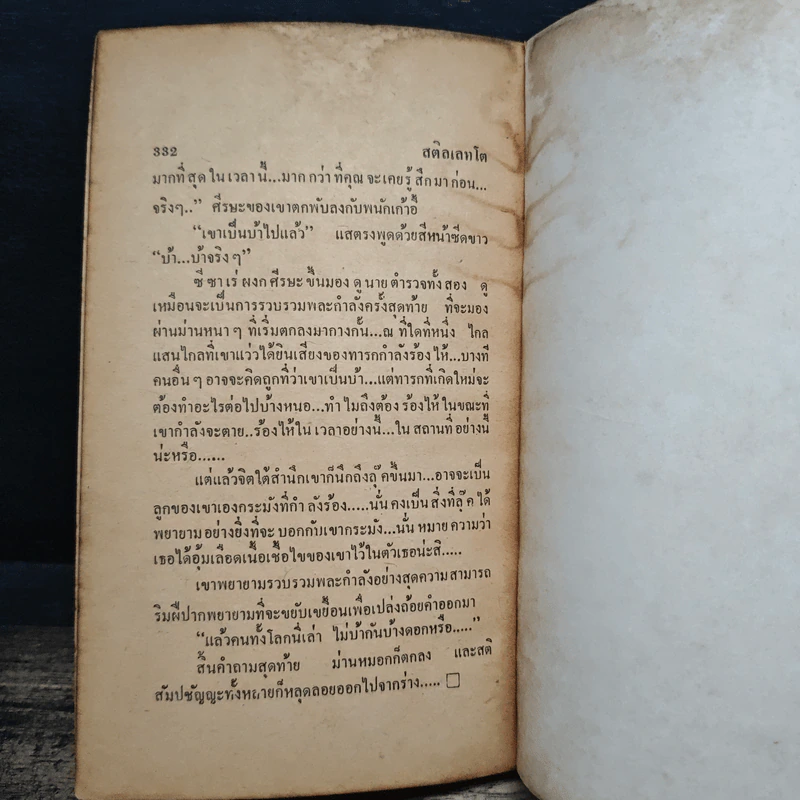 332 สติลเลทโต
มากที่สุดในเวลานี้...มากกว่าที่คุณจะเคยรู้สึกมาก่อน...
จริงๆ.." ศีรษะของเขาตกพับลงกับพนักเก้าอี้
"เขาเป็นบ้าไปแล้ว" แสตรงพูดด้วยสีหน้าซีดขาว
"บ้า...บ้าจริงๆ"
ซีซาเร่ผงกศีรษะขึ้นมองดูนายตำรวจทั้งสอง ดู
เหมือนจะเป็นการรวบรวมพละกำลังครั้งสุดท้าย ที่จะมอง
ผ่านม่านหนาๆ ที่เริ่มตกลงมากางกั้น...ณ ที่ใดที่หนึ่ง ไกล
แสนไกลที่เขาแว่วได้ยินเสียงของทารกกำลังร้องไห้...บางที
คนอื่นๆ อาจจะคิดถูกที่ว่าเขาเป็นบ้า...แต่ทารกที่เกิดใหม่จะ
ต้องทำอะไรต่อไปบ้างหนอ...ทำไมถึงต้องร้องไห้ในขณะที่
เขากำลังจะตาย..ร้องไห้ในเวลาอย่างนี้...ในสถานที่อย่างนี้
น่ะหรือ......
แต่แล้วจิตใต้สำนึกเขาก็นึกถึงลุ๊คขึ้นมา...อาจจะเป็น
ลูกของเขาเองกระมังที่กำลังร้อง.....นั่นคงเป็นสิ่งที่ลุ๊คได้
พยายามอย่างยิ่งที่จะบอกกับเขากระมัง...นั่นหมายความว่า
เธอได้อุ้มเลือดเนื้อเชื้อไขของเขาไว้ในตัวเธอน่ะสิ.....
เขาพยายามรวบรวมพละกำลังอย่างสุดความสามารถ
ริมฝีปากพยายามที่จะขยับเขยื้อนเพื่อเปล่งถ้อยคำออกมา
"แล้วคนทั้งโลกนี่เล่า ไม่บ้ากันบ้างดอกหรือ....."
สิ้นคำถามสุดท้าย ม่านหมอกก็ตกลง และสติ
สัมปชัญญะทั้งหลายก็หลุดลอยออกไปจากร่าง..... □